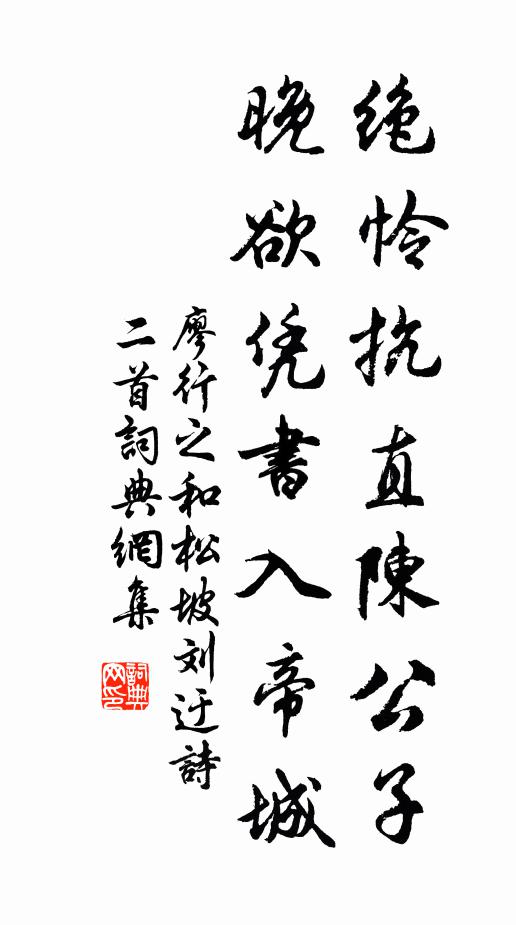 绝怜抗直陳公子
晚欲凭書入帝城
廖行之和松坡刘迂詩
二首詞典網集
詞典网印